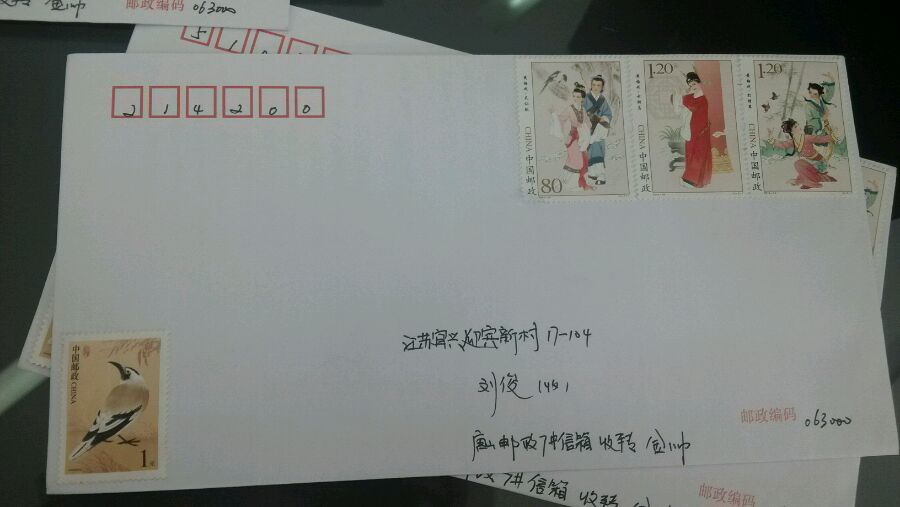 收转 金帅
邮政编码 063000
5 1 0
2 1 4 2 0 0
80
CHINA 中国邮政
1.20
CHINA 中国邮政
1.20
CHINA 中国邮政
江苏宜兴迎宾新村 17-104
刘俊 (收)
邮政编码 063000
唐山邮政7#信箱 收转 金帅
中国邮政
CHINA
1元
7#信箱 收转
邮政编码